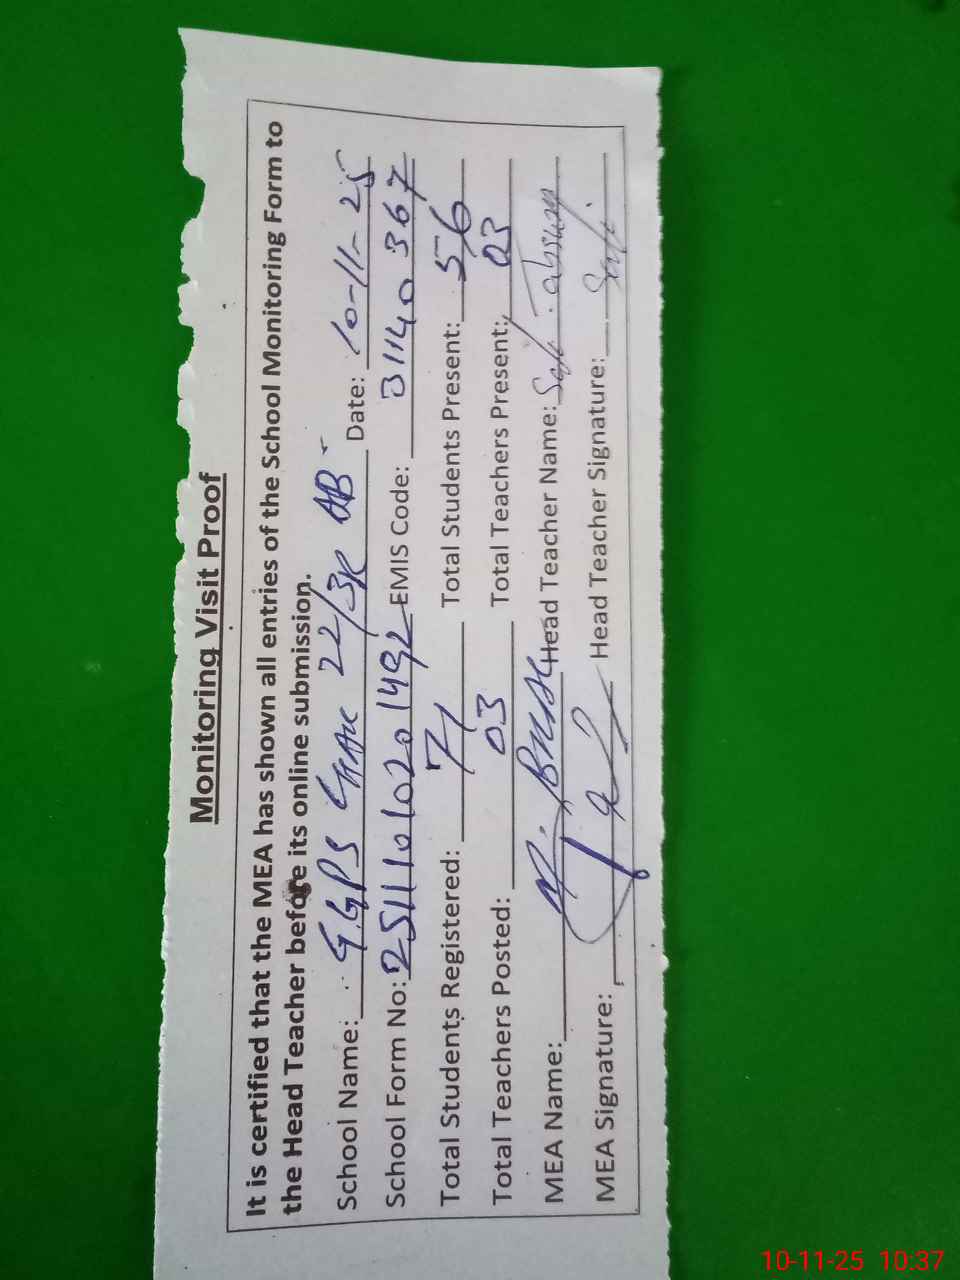 Monitoring Visit Proof
It is certified that the MEA has shown all entries of the School Monitoring Form to
the Head Teacher before its online submission.
School Name: G.GPS CHAK 22/3R AB Date: 10-11-25
School Form No: 2511101020 1492 EMIS Code: 31140367
Total Students Registered: 71 Total Students Present: 56
Total Teachers Posted: 03 Total Teachers Present: 03
MEA Name: Head Teacher Name:
MEA Signature: Head Teacher Signature:
10-11-25 10:37